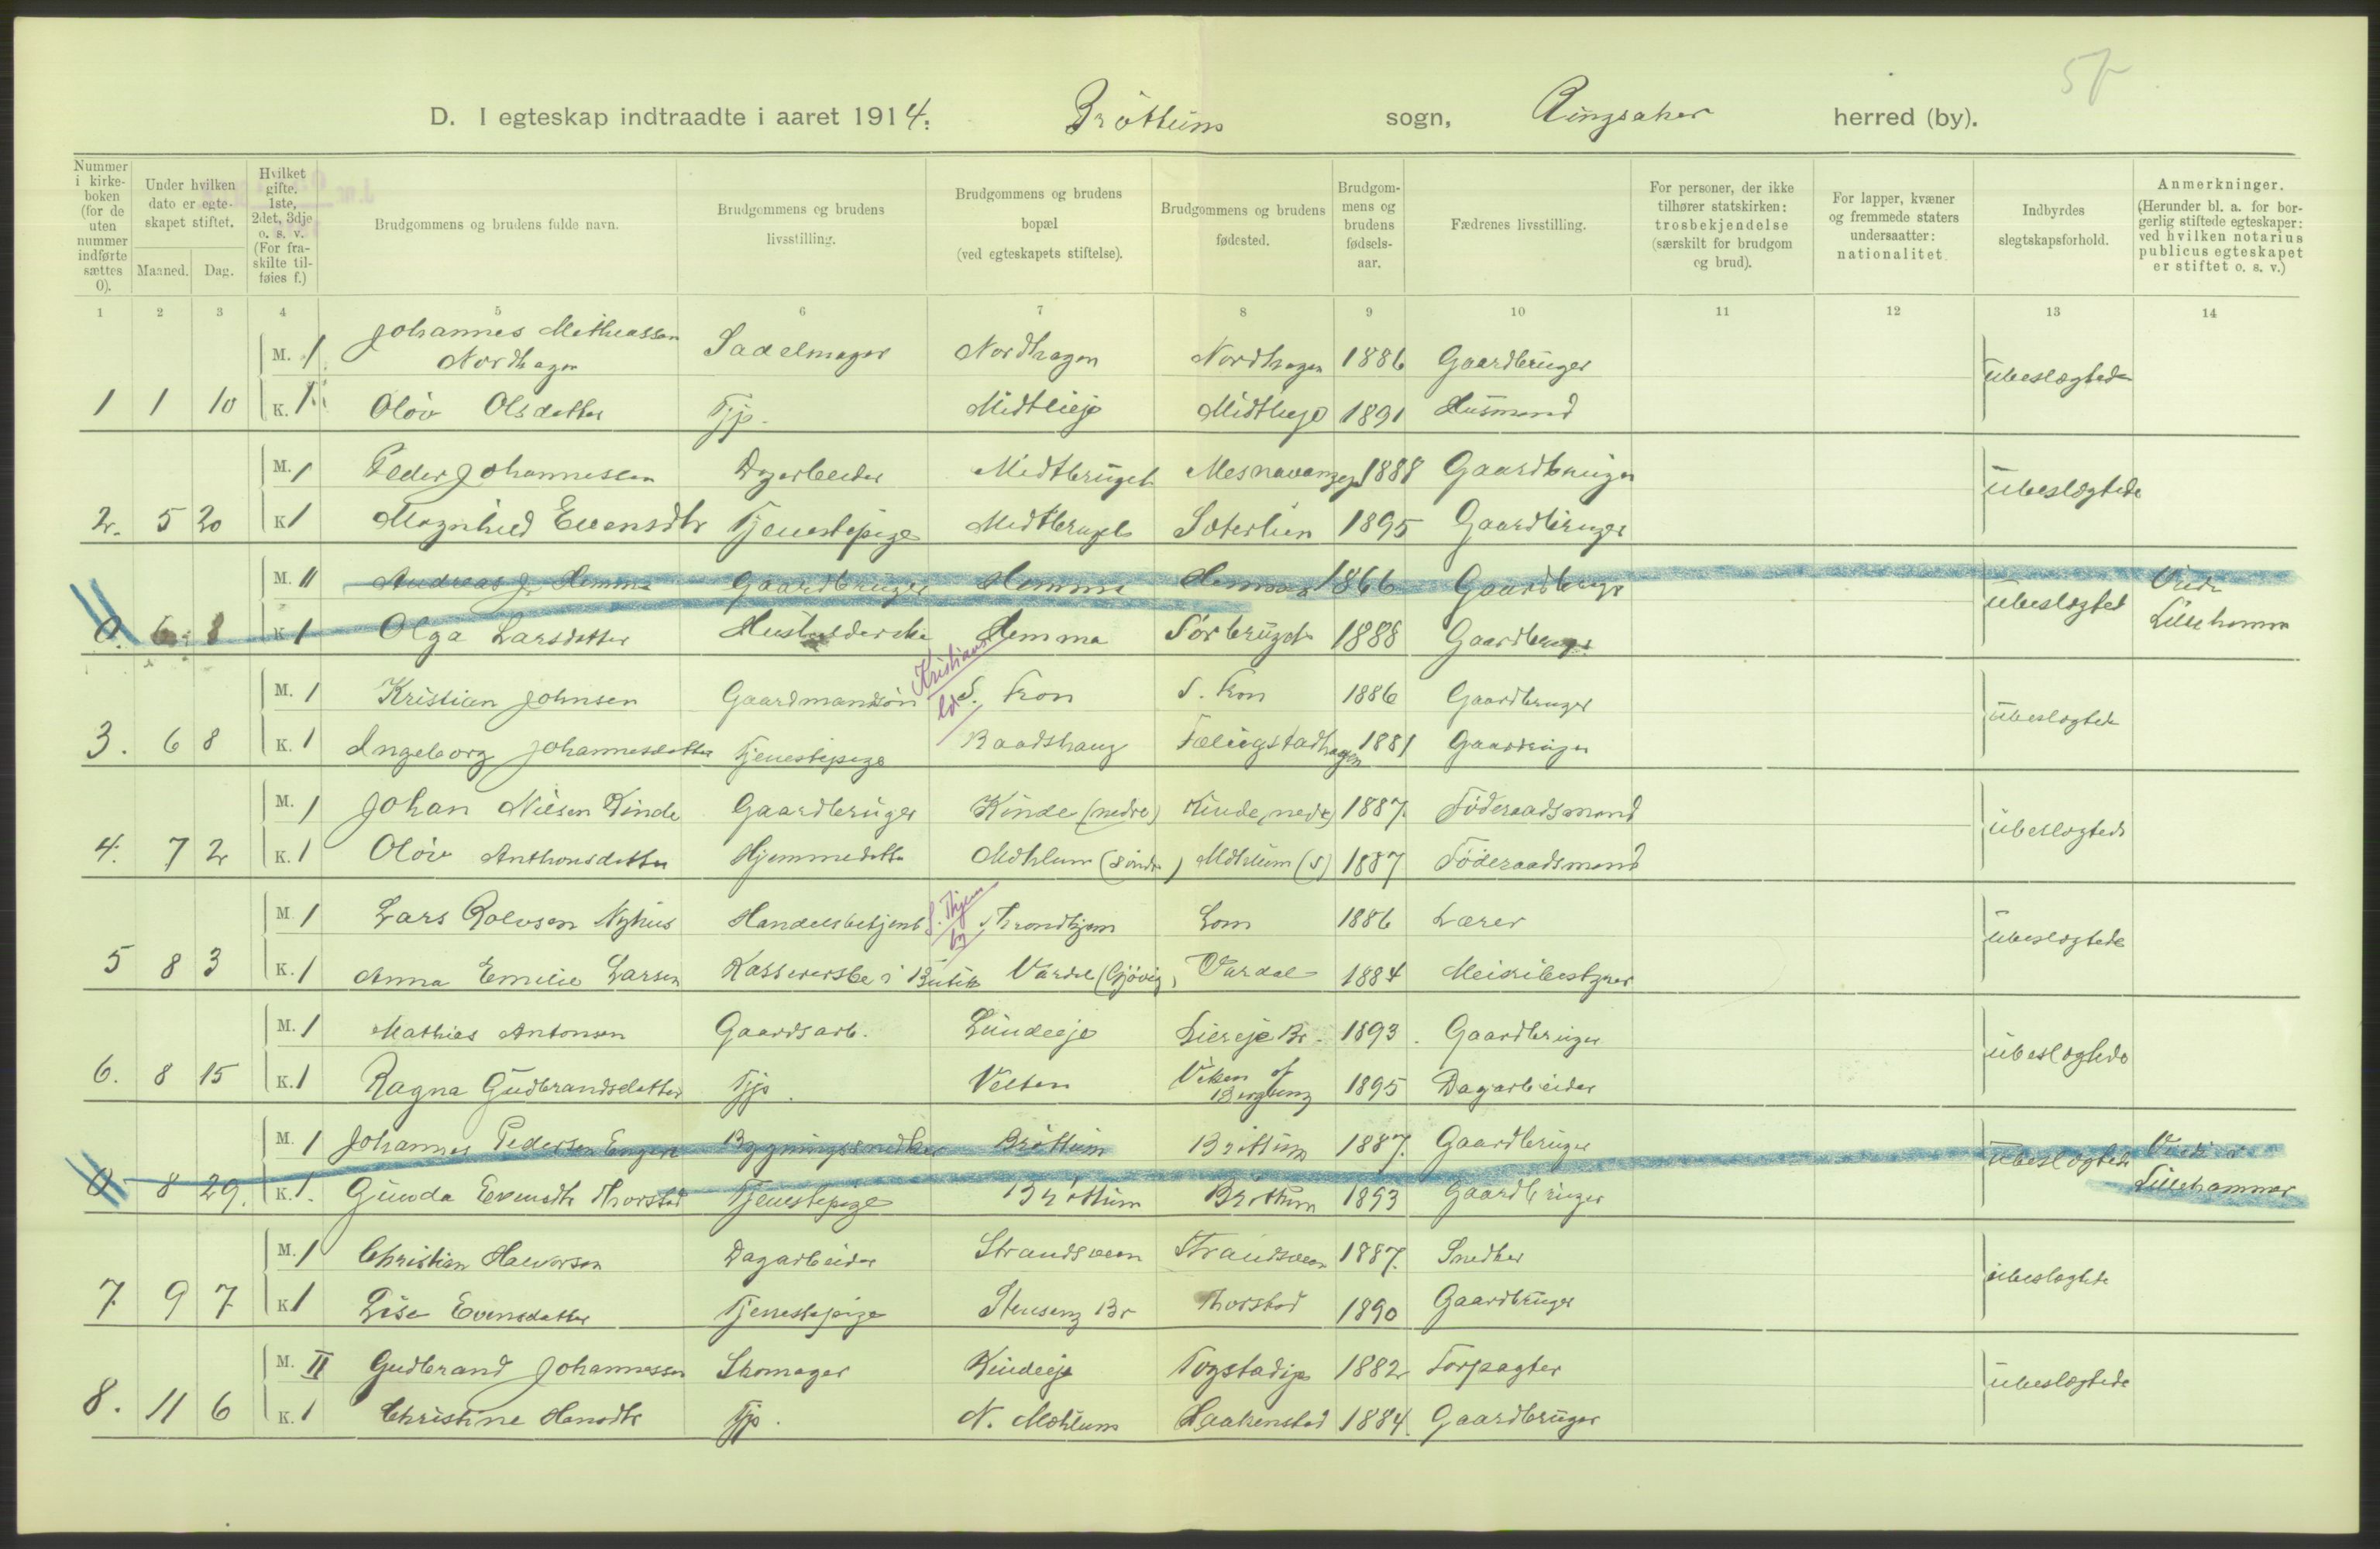 57
D. I egteskap indtraadte i aaret 1914. Brøttum sogn, Ringsaker herred (by).
Nummer i kirkeboken (for de uten nummer indførte sættes 0).
Under hvilken dato er egteskapet stiftet.
Maaned. Dag.
Hvilket gifte. 1ste, 2det, 3dje o. s. v. (For fraskilte tilføies f.)
Brudgommens og brudens fulde navn.
Brudgommens og brudens livsstilling.
Brudgommens og brudens bopæl (ved egteskapets stiftelse).
Brudgommens og brudens fødested.
Brudgommens og brudens fødselsaar.
Fædrenes livsstilling.
For personer, der ikke tilhører statskirken: trosbekjendelse (særskilt for brudgom og brud).
For lapper, kvæner og fremmede staters undersaatter: nationalitet.
Indbyrdes slegtskapsforhold.
Anmerkninger. (Herunder bl. a. for borgerlig stiftede egteskaper: ved hvilken notarius publicus egteskapet er stiftet o. s. v.)
1 2 3 4 5 6 7 8 9 10 11 12 13 14
M. 1 Johannes Mathiassen Nordhagen Sadelmager Nordhagen Nordhagen 1886 Gaardbruger ubeslegtede
1 1 10 K. 1 Oløv Olsdatter Tjp. Midtlieje Midtlieje 1891 Husmand
M. 1 Peder Johannessen Dagarbeider Midtbruget 1888 Gaardbruger ubeslegtede
2. 5 20 K 1 Magnhild Evensdtr Tjenestepige Midtbruget Sæterlien 1895 Gaardbruger
M. II Andreas J. Hemma Gaardbruger Hemma Hemma 1866 Gaardbrugr ubeslegted Viede
0. 6. 8 K 1 Olga Larsdatter Husholderske Hemma Sørbruget 1888 Gaardbruger Lillehamm
Kristians
M. 1 Kristian Johnsen Gaardmandsøn S. Fron S. Fron 1886 Gaardbruger ubeslegtede
3. 6 8 K. 1 Ingeborg Johannesdatter Tjenestepige Baadshaug Fælingstadhagen 1881 Gaardbruger
M. 1 Johan Nilsen Kinde Gaardbruger Kinde (nedre) Kinde (nedr) 1887. Føderaadsmand ubeslegtede
4. 7 2 K. 1 Oløv Anthonsdatter Hjemmedatter Mæhlum (søndr) Mæhlum (s) 1887 Føderaadsmand
S. Thjem by
M. 1 Lars Rolvsen Nyhus Handelsbetjent Throndhjem Lom 1886 Lærer ubeslegtede
5 8 3 K. 1 Anna Emilie Larsen Kassererske i Butik Vardal (Gjøvig) Vardal 1884 Meieribestyrer
M. 1 Mathias Antonsen Gaardsarb. Lundeeje Liereje Br. 1893. Gaardbruger ubeslegtede
6. 8 15 K. 1 Ragna Gudbrandsdatter Tjp. Velten Viken af Bergseng 1895 Dagarbeider
M. 1 Johannes Pedersen Engen Bygningssnedker Brøttum Brøttum 1887. Gaardbruger ubeslegtede Viede i
0. 8 29. K. 1. Gunda Evensdtr Thorstad Tjenestepige Brøttum Brøttum 1893 Gaardbruger Lillehammer
M. 1 Christian Halvorsen Dagarbeider Strandsveen Strandsveen 1887. Snedker ubeslegtede
7. 9 7 K 1 Lise Evensdatter Tjenestepige Stenseng Br Thorstad 1890 Gaardbruger
M. II Gudbrand Johannessen Skomager Kindeeje 1882 Forpagter ubeslegtede
8. 11 6 K. 1 Christine Hansdtr Tjp. N. Mæhlum Haakenstad 1884. Gaardbruger